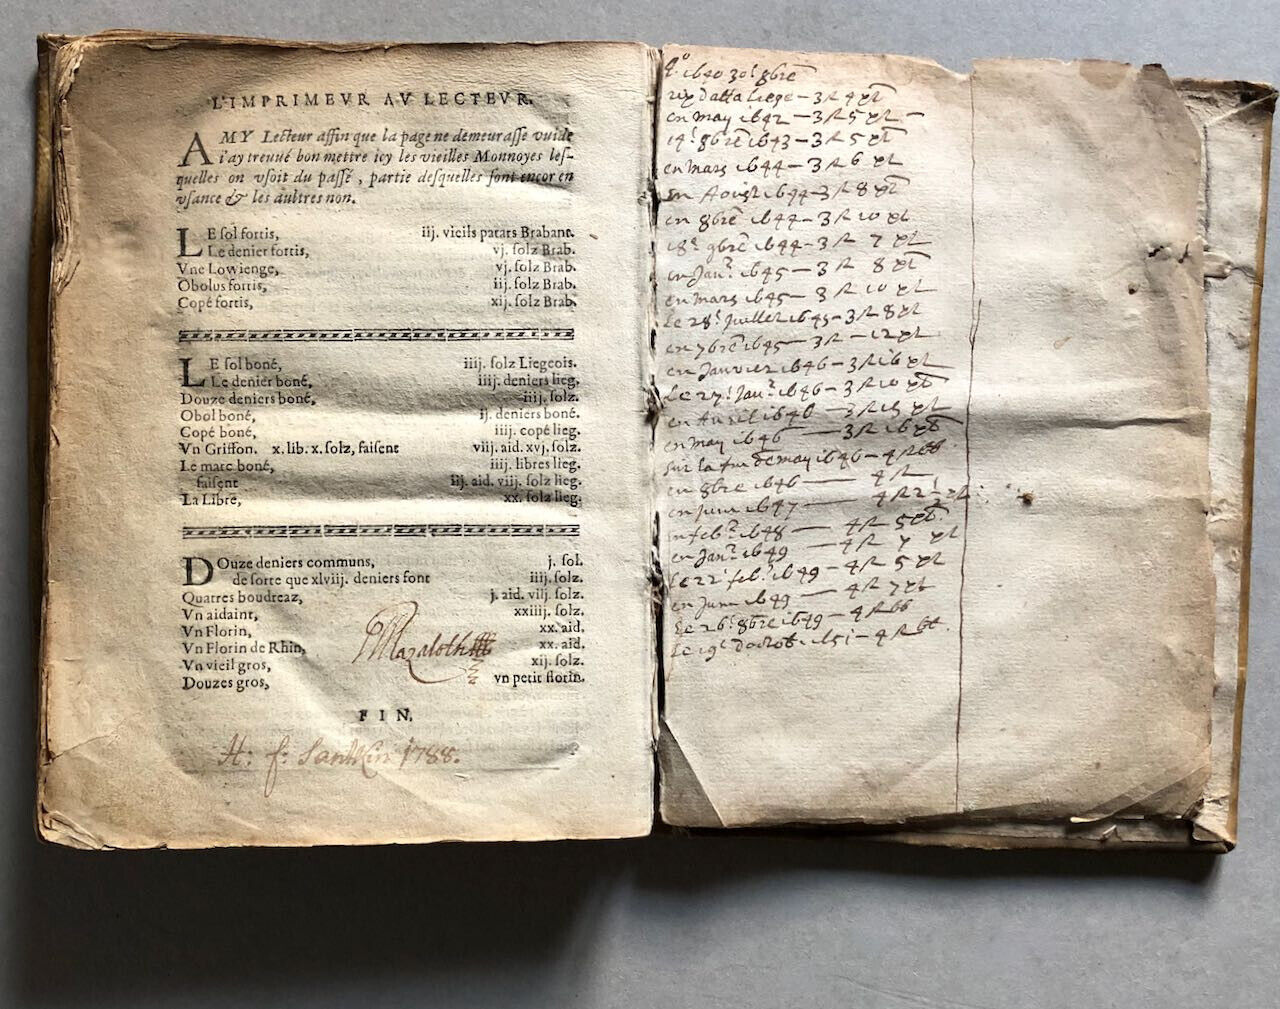 L'IMPRIMEVR AV LECTEVR.
AMY Lecteur affin que la page ne demeurasse vuide
i'ay treuué bon mettre icy les vieilles Monnoyes les-
quelles on vsoit du passé, partie desquelles sont encor en
vsance & les aultres non.
LE sol fortis, iij. vieils patars Brabant.
Le denier fortis, vj. solz Brab.
Vne Lowienge, vj. solz Brab.
Obolus fortis, iij. solz Brab.
Copé fortis, xij. solz Brab.
LE sol boné, iiij. solz Liegeois.
Le denier boné, iiij. deniers lieg.
Douze deniers boné, iiij. solz.
Obol boné, ij. deniers boné.
Copé boné, iiij. copé lieg.
Vn Griffon. x. lib. x. solz, faisent viij. aid. xvj. solz.
Le marc boné, iiij. libres lieg.
faisent iij. aid. viij. solz lieg.
La Libre, xx. solz lieg.
DOuze deniers communs, j. sol.
de sorte que xlviij. deniers font iiij. solz.
Quatres boudreaz, j. aid. viij. solz.
Vn aidaint, xxiiij. solz.
Vn Florin, xx. aid.
Vn Florin de Rhin, xx. aid.
Vn vieil gros, xij. solz.
Douzes gros, vn petit florin.
FIN.
H: f: 1788.
1640 30 8bre
Liege – 3 4
en may 1642 – 3 5
14 8bre 1643 – 3 5
en mars 1644 – 3 6
en Aoust 1644 – 3 8
en 8bre 1644 – 3 10
18 9bre 1644 – 3 7
en Janr 1645 – 3 8
en mars 1645 – 3 10
Le 28 Juillet 1645 – 3 8
en 7bre 1645 – 3 – 12
en Janvier 1646 – 3 16
Le 27 Janr 1646 – 3 10
en Avril 1646 – 3
en may 1646 – 3 16
sur la fin de may 1646 – 4
en 8bre 1646 – 4
en juin 1647 – 4 2
en febr 1648 – 4 5
en Janr 1649 – 4 7
Le 22 febr 1649 – 4 5
en Juin 1649 – 4 7
Le 26 8bre 1649 – 4
Le 19 d'octob 1651 – 4